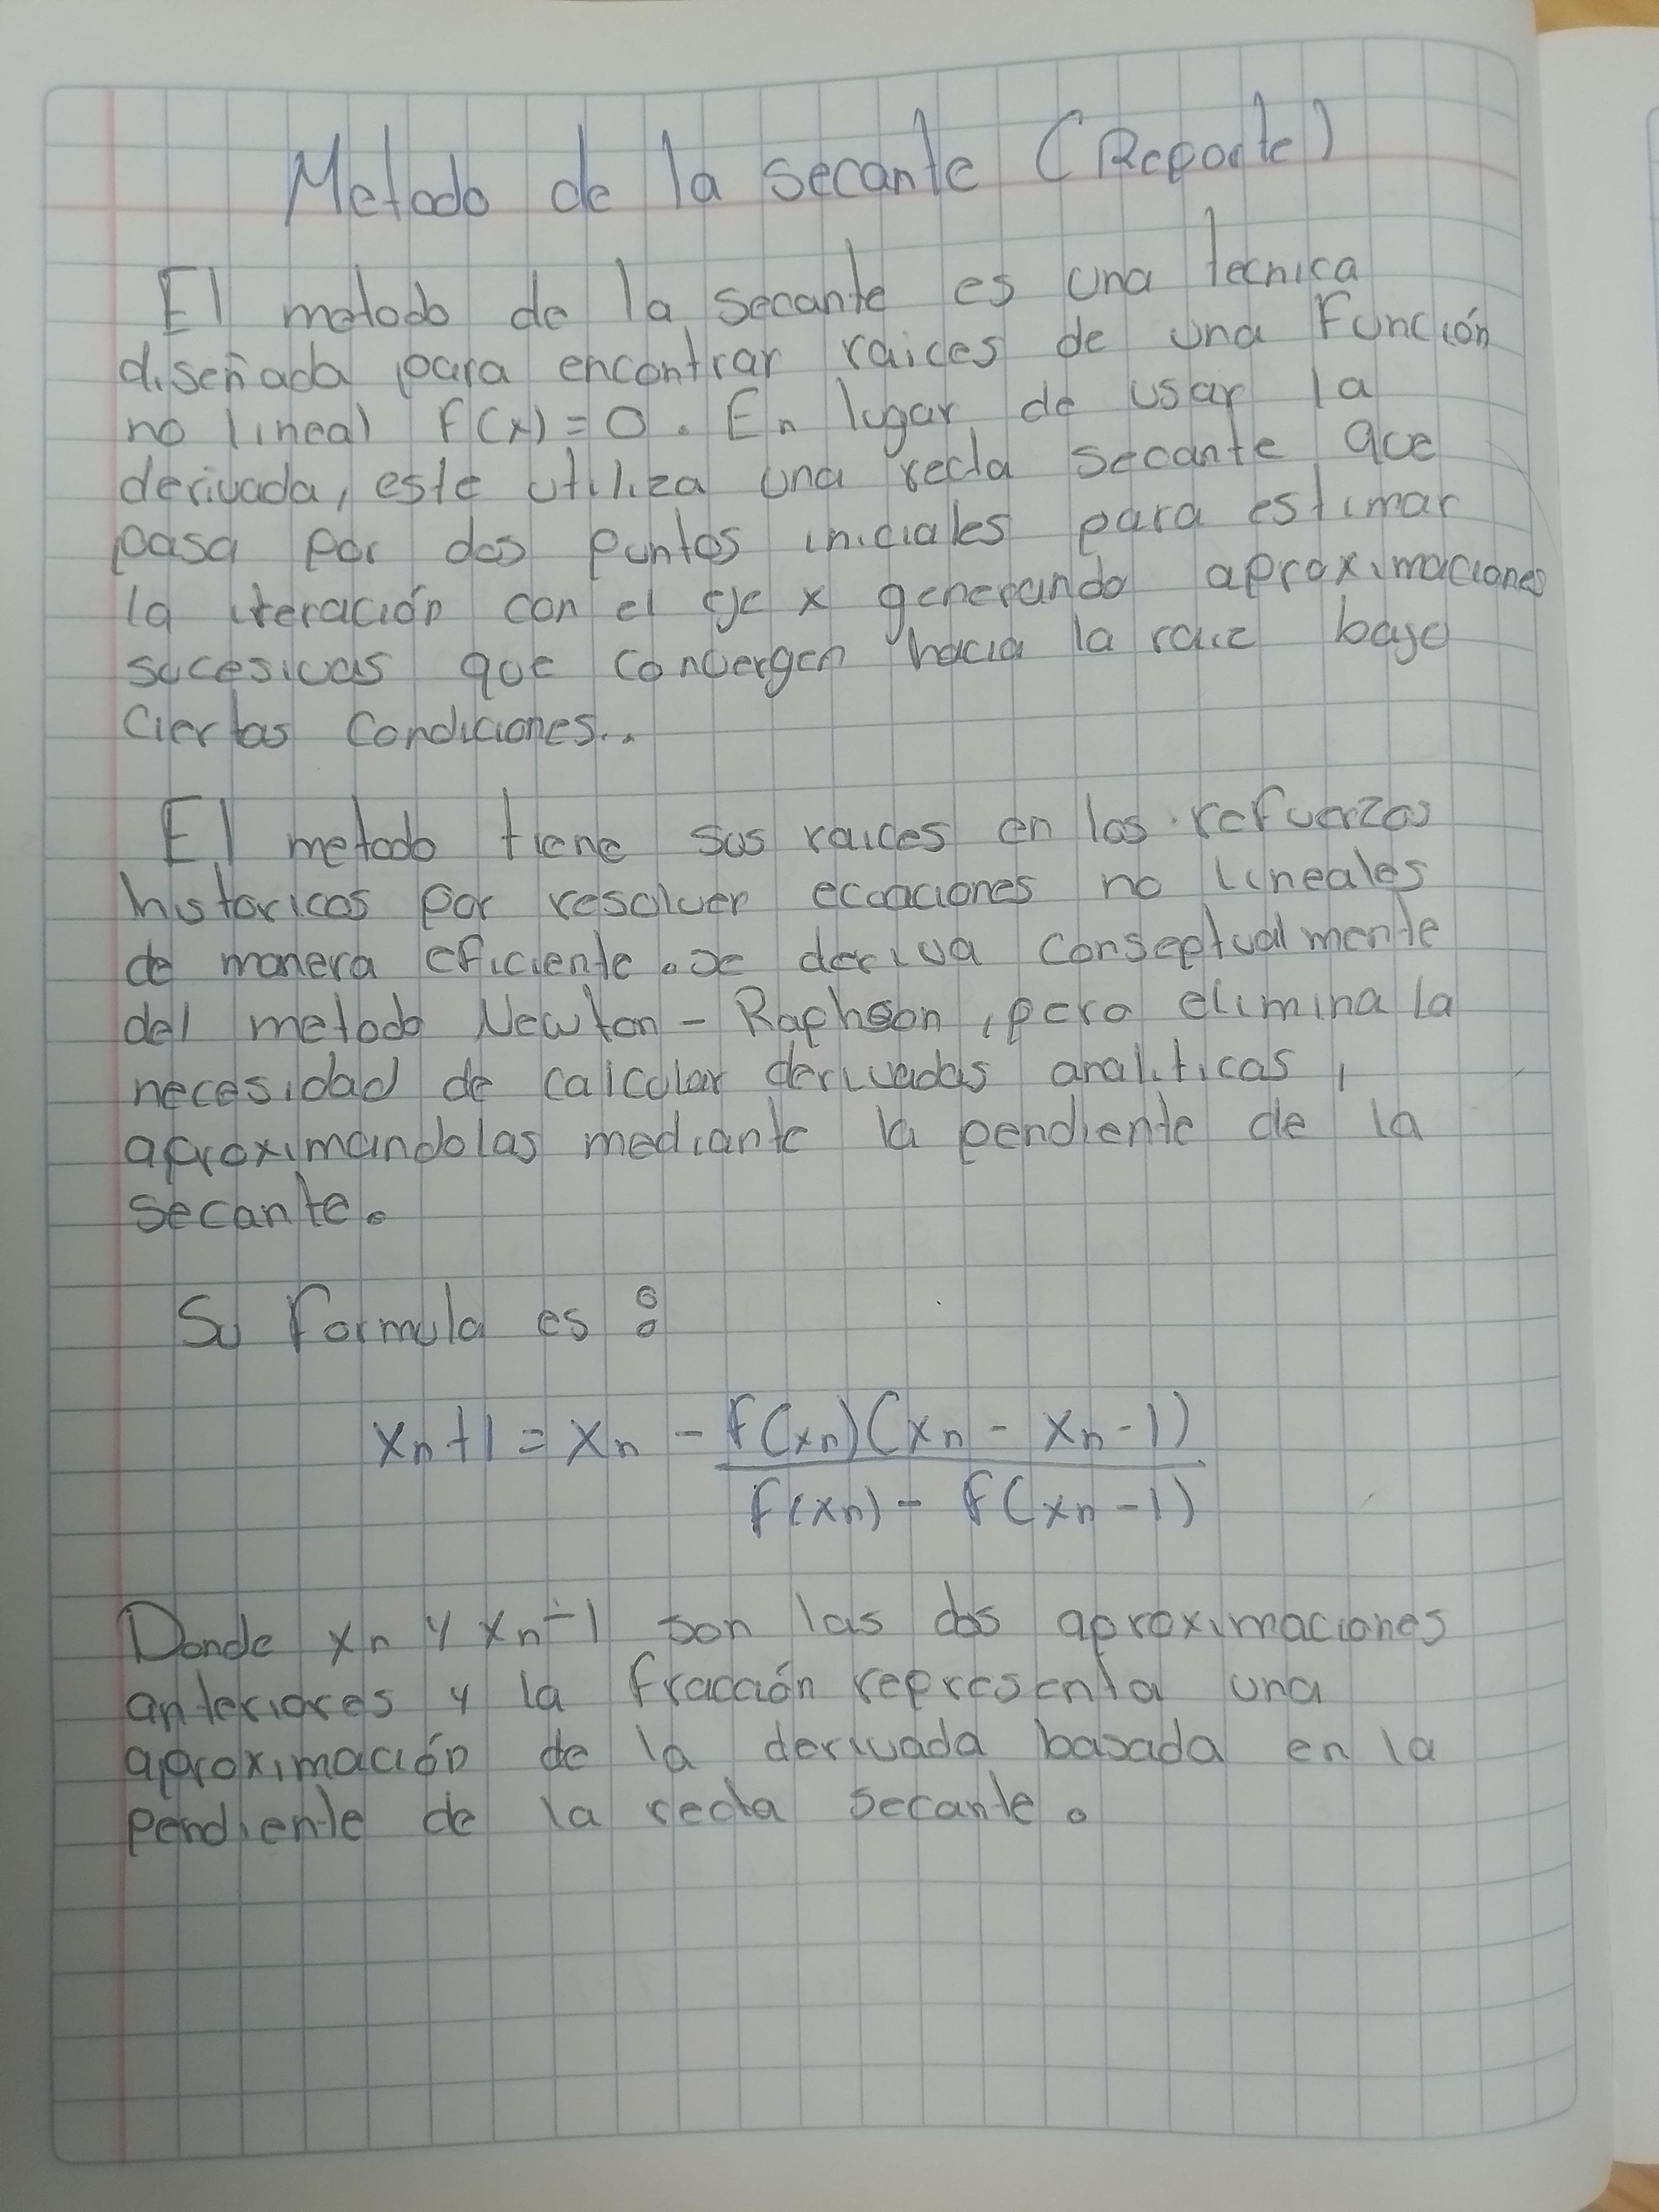 Metodo de la secante (Reporte)
El metodo de la secante es una tecnica
diseñada para encontrar raices de una Función
no lineal f(x) = 0. En lugar de usar la
derivada, este utiliza una recta secante que
pasa por dos puntos iniciales para estimar
la iteración con el eje x generando aproximaciones
sucesivas que convergen hacia la raiz bajo
ciertas condiciones..
El metodo tiene sus raices en los refuerzos
historicos por resolver ecuaciones no lineales
de manera eficiente. se deriva conseptualmente
del metodo Newton - Raphson, pero elimina la
necesidad de calcular derivadas analiticas,
aproximandolas mediante la pendiente de la
secante.
Su formula es :
xn+1 = xn - f(xn)(xn - xn-1)
f(xn) - f(xn-1)
Donde xn y xn-1 son las dos aproximaciones
anteriores y la fracción representa una
aproximación de la derivada basada en la
pendiente de la recta secante.